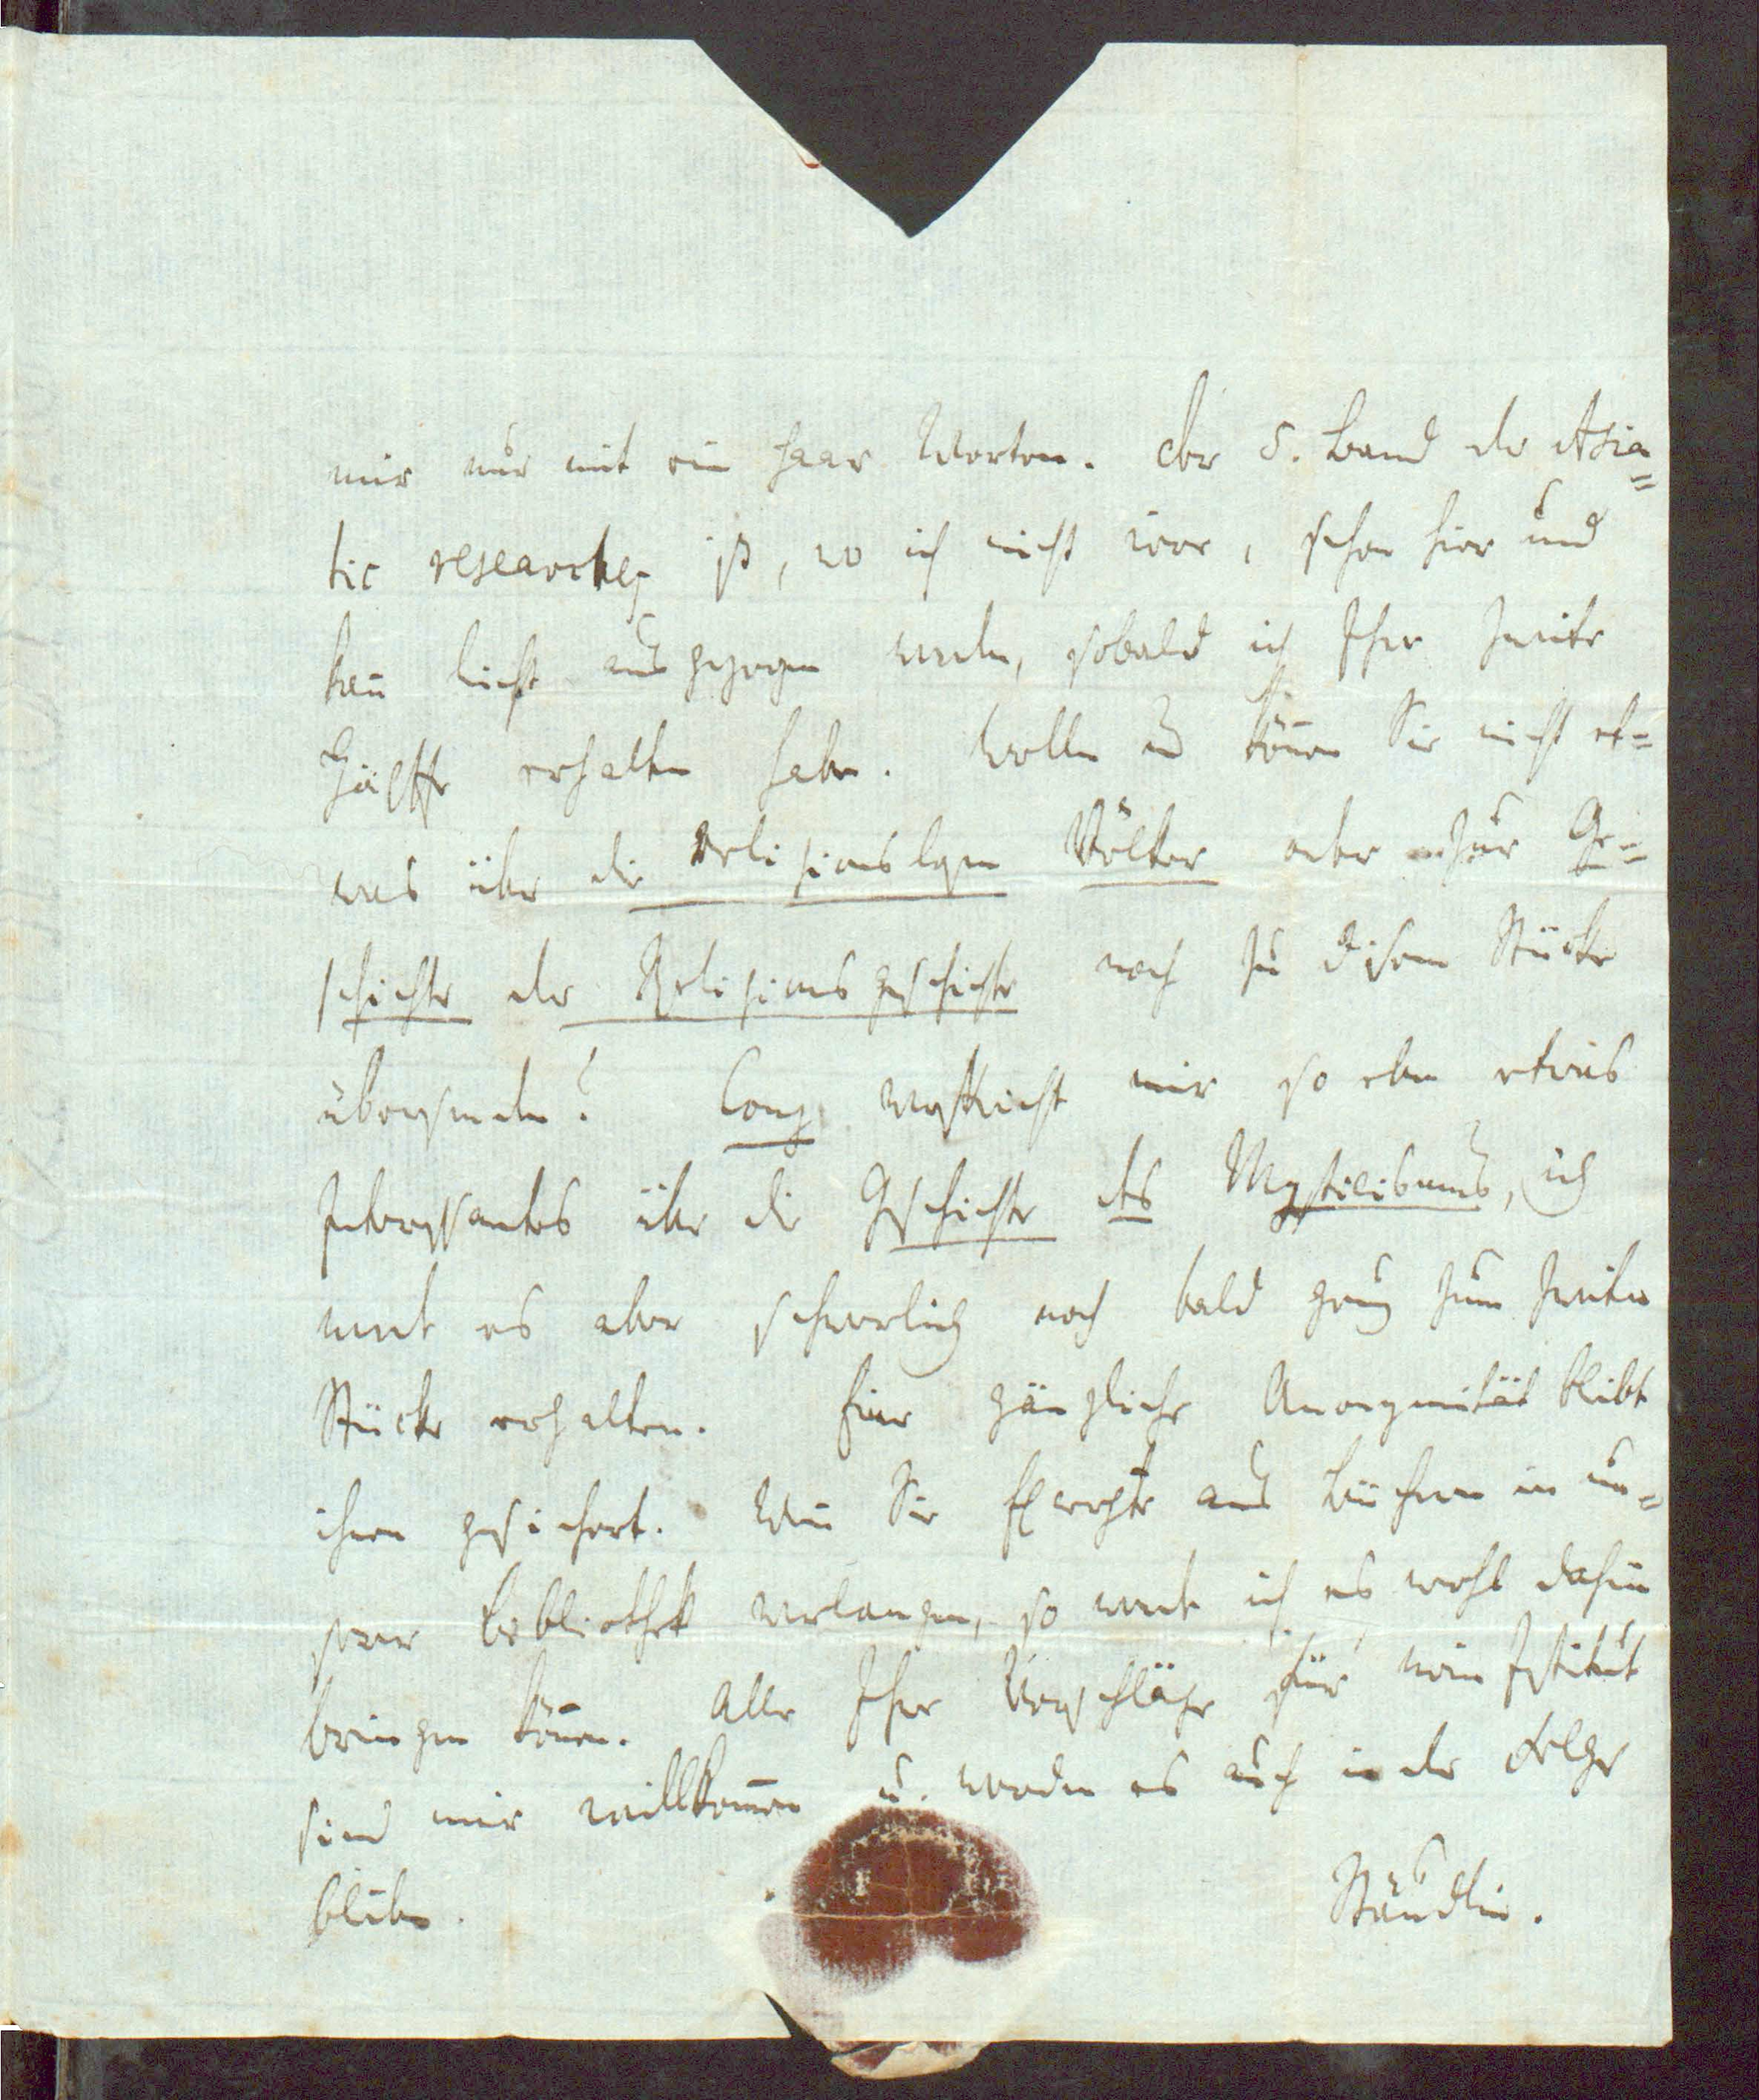 mir nur mit ein paar Worten. Der 5. Band der Asia=
tic researches ist, wo ich nicht irre, schon hier und
kañ leicht ausgezogen werden, sobald ich Ihre zweite
Hälfte erhalten habe. Wollen und köñen Sie nicht et=
was über die religionslosen Völker oder zur Ge=
schichte der Religionsgeschichte noch zu disem Stücke
übersenden? Conz verspricht mir so eben etwas
Interessantes über die Geschichte des Mysticismus, ich
werde es aber schwerlich noch bald genug zum zweiten
Stücke erhalten. Eine gänzliche Anonymität bleibt
ihnen gesichert. Weñ Sie Excerpte aus Büchern in un=
serer Bibliothek verlangen, so werde ich es wohl dahin
bringen köñen. Alle Ihre Vorschläge für mein Institut
sind mir willkom̄en u. werden es auch in der Folge
bleiben.
Stäudlin.